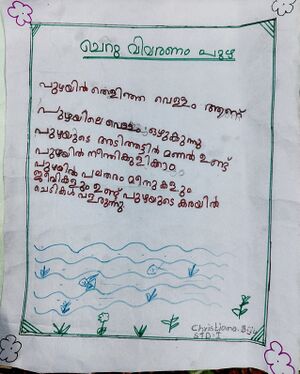 ചെറു വിവരണം പുഴ
പുഴയിൽ തെളിഞ്ഞ വെള്ളം ആണ്
പുഴയിലെ വെള്ളം ഒഴുകുന്നു
പുഴയുടെ അടിത്തട്ടിൽ മണൽ ഉണ്ട്
പുഴയിൽ നീന്തിക്കുളിക്കാം
പുഴയിൽ പലതരം മീനുകളും
ജീവികളും ഉണ്ട് പുഴയുടെ കരയിൽ
ചെടികൾ വളരുന്നു
Christiana. Biju
STD-I